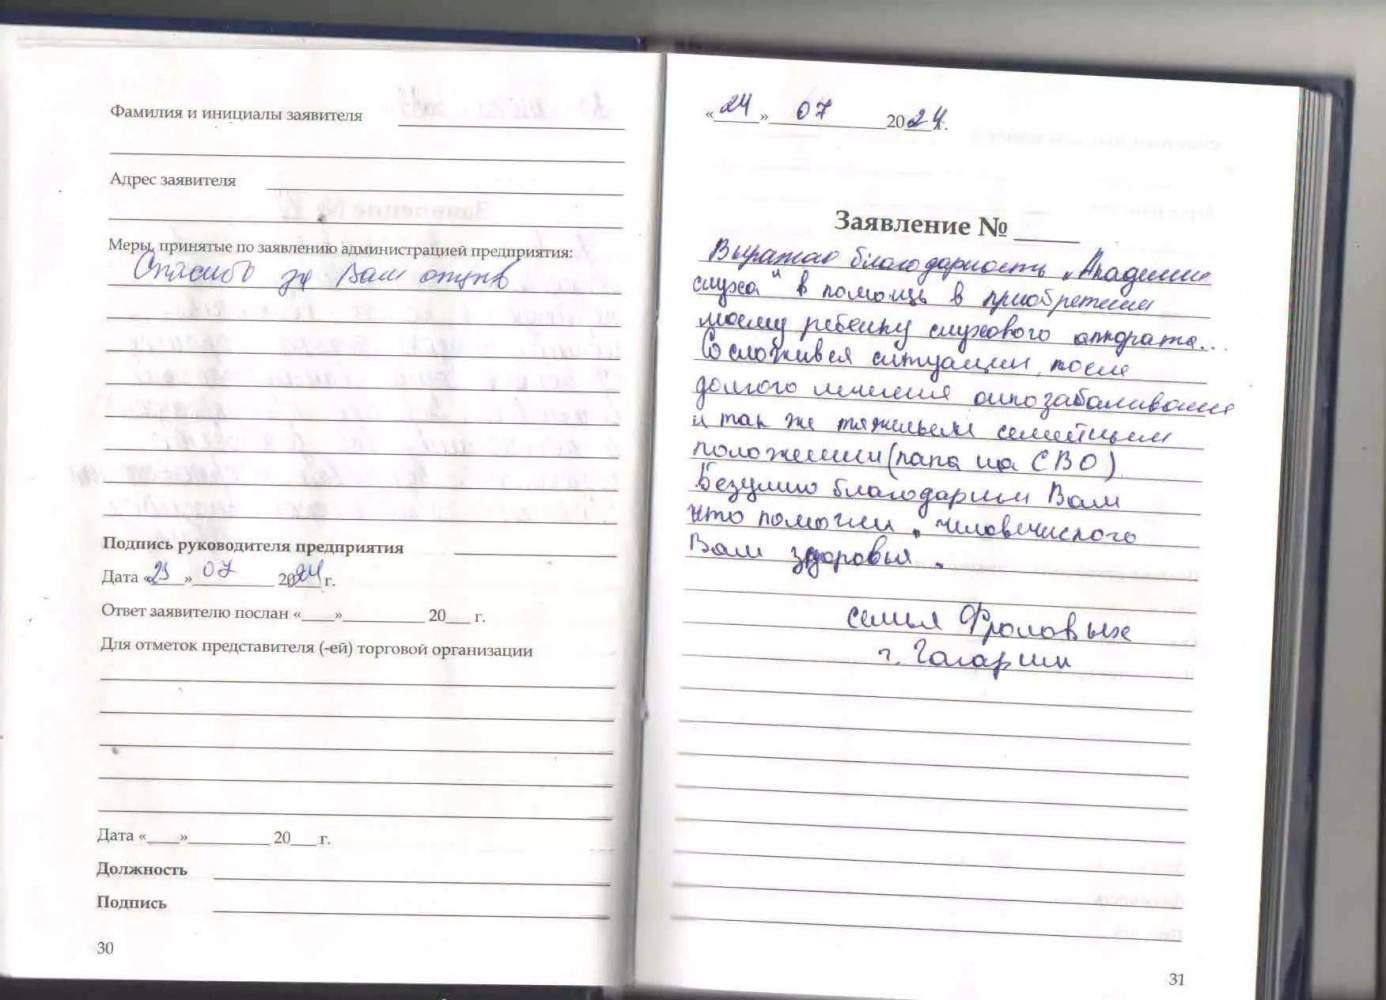 Фамилия и инициалы заявителя
Адрес заявителя
Меры, принятые по заявлению администрацией предприятия:
Спасибо за Ваш отзыв
Подпись руководителя предприятия
Дата «25» 07 2024 г.
Ответ заявителю послан «____»__________ 20___ г.
Для отметок представителя (-ей) торговой организации
Дата «____»__________ 20___ г.
Должность
Подпись
30
«24» 07 2024 г.
Заявление № ____
Выражаю благодарность "Академии
слуха" в помощь в приобретении
моему ребенку слухового аппарата...
Со сложився ситуации, после
долгого лечения онкозабаливания
и так же тяжелым семейным
положении (папа на СВО).
Безумно благодарим Вам
что помогли. человечиского
Вам здоровья.
семья Фроловых
г. Гагарин
31